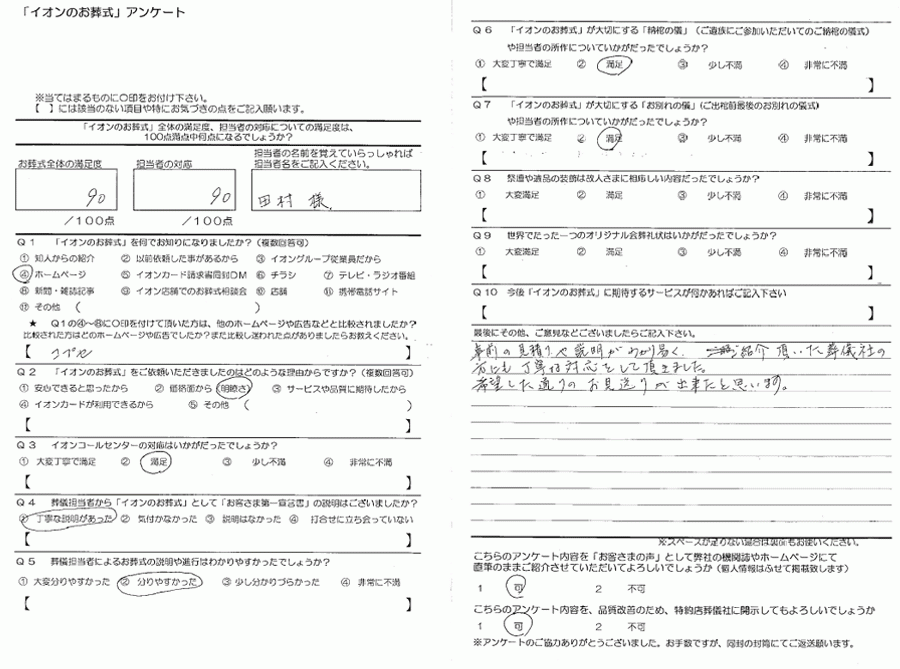 「イオンのお葬式」アンケート
※当てはまるものに〇印をお付け下さい。
【 】には該当のない項目や特にお気づきの点をご記入願います。
「イオンのお葬式」全体の満足度、担当者の対応についての満足度は、
100点満点中何点になるでしょうか?
お葬式全体の満足度
90
/100点
担当者の対応
90
/100点
担当者の名前を覚えていらっしゃれば
担当者名をご記入ください。
田村 様
Q1 「イオンのお葬式」を何でお知りになりましたか?(複数回答可)
① 知人からの紹介 ② 以前依頼した事があるから ③ イオングループ従業員だから
④ ホームページ ⑤ イオンカード請求書同封DM ⑥ チラシ ⑦ テレビ・ラジオ番組
⑧ 新聞・雑誌記事 ⑨ イオン店舗でのお葬式相談会 ⑩ 店舗 ⑪ 携帯電話サイト
⑫ その他 ( )
★ Q1の④~⑥に〇印を付けて頂いた方は、他のホームページや広告などと比較されましたか?
比較された方はどのホームページや広告でしたか?また比較し迷われた点がありましたらお教えください。
【 】
Q2 「イオンのお葬式」をご依頼いただきましたのはどのような理由からですか?(複数回答可)
① 安心できると思ったから ② 価格面から(明瞭さ) ③ サービスや品質に期待したから
④ イオンカードが利用できるから ⑤ その他 ( )
【 】
Q3 イオンコールセンターの対応はいかがだったでしょうか?
① 大変丁寧で満足 ② 満足 ③ 少し不満 ④ 非常に不満
【 】
Q4 葬儀担当者から「イオンのお葬式」として「お客さま第一宣言書」の説明はございましたか?
① 丁寧な説明があった ② 気付かなかった ③ 説明はなかった ④ 打合せに立ち会っていない
【 】
Q5 葬儀担当者によるお葬式の説明や進行はわかりやすかったでしょうか?
① 大変分りやすかった ② 分りやすかった ③ 少し分かりづらかった ④ 非常に不満
【 】
Q6 「イオンのお葬式」が大切にする「納棺の儀」(ご遺族にご参加いただいてのご納棺の儀式)
や担当者の所作についていかがだったでしょうか?
① 大変丁寧で満足 ② 満足 ③ 少し不満 ④ 非常に不満
【 】
Q7 「イオンのお葬式」が大切にする「お別れの儀」(ご出棺前最後のお別れの儀式)
や担当者の所作についていかがだったでしょうか?
① 大変丁寧で満足 ② 満足 ③ 少し不満 ④ 非常に不満
【 】
Q8 祭壇や遺品の装飾は故人さまに相応しい内容だったでしょうか?
① 大変満足 ② 満足 ③ 少し不満 ④ 非常に不満
【 】
Q9 世界でたった一つのオリジナル会葬礼状はいかがだったでしょうか?
① 大変満足 ② 満足 ③ 少し不満 ④ 非常に不満
【 】
Q10 今後「イオンのお葬式」に期待するサービスが何かあればご記入下さい
【 】
最後にその他、ご意見などございましたらご記入下さい。
事前の見積りや説明がわかり易く、ご紹介頂いた葬儀社の
方にも丁寧な対応をして頂きました。
希望した通りのお見送りが出来たと思います。
※スペースが足りない場合は裏面もお使いください。
こちらのアンケート内容を「お客さまの声」として弊社の機関誌やホームページにて
直筆のままご紹介させていただいてよろしいでしょうか(個人情報はふせて掲載致します)
1 可 2 不可
こちらのアンケート内容を、品質改善のため、特約店葬儀社に開示してもよろしいでしょうか
1 可 2 不可
※アンケートのご協力ありがとうございました。お手数ですが、同封の封筒にてご返送願います。